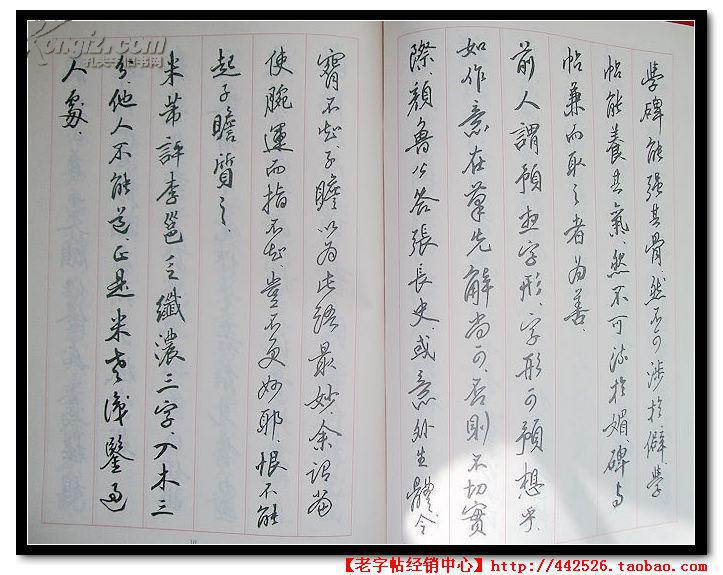 學碑能強其骨、然不可涉於僻、學
帖能養其氣、然不可流於媚、碑与
帖兼而取之者為善、
前人謂預想字形、字形可預想乎、
如作意在筆先解尚可、否則不切實
際、顏魯公答張長史、或意外生體、令
不知、子瞻以為此語最妙、余謂當
使腕運而指不知、豈不更妙耶、恨不能
起子瞻質之、
米芾評李邕之纖濃二字、入木三
分、他人不能道、正是米老識鑒過
人處、
孔夫子旧书网
【老字帖经销中心】http://442526.taobao.com/